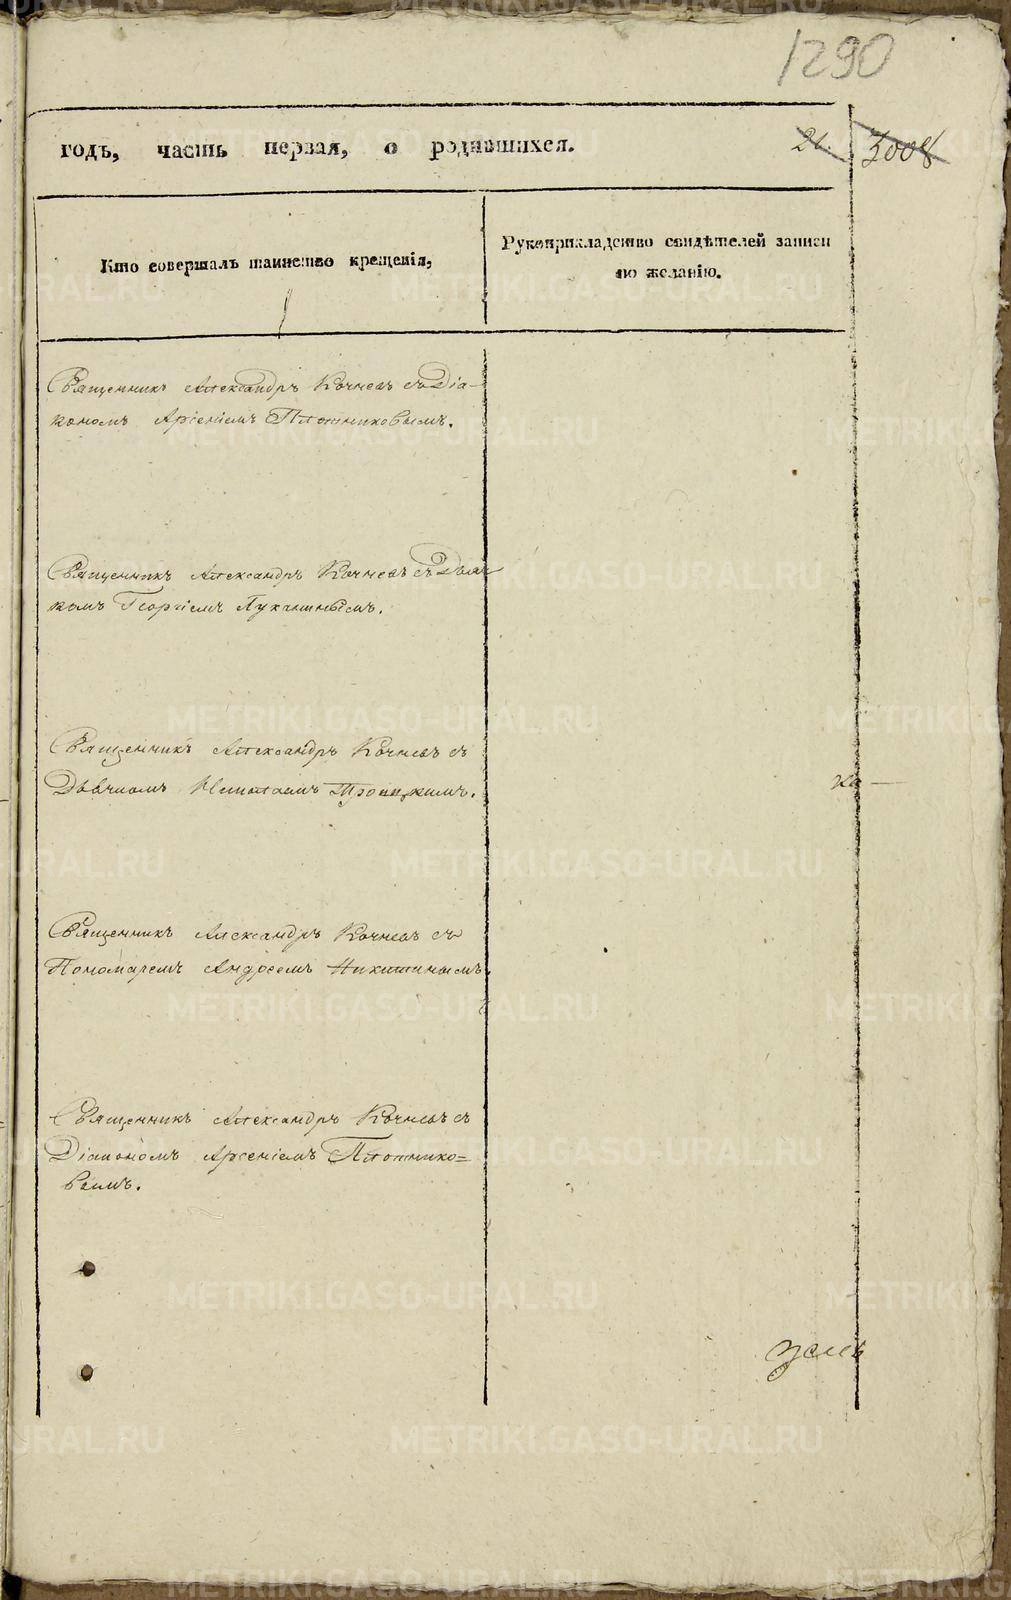 1290
годъ, часть первая, о родившихся.
21. 3008
Кто совершалъ таинство крещенія,
Рукоприкладство свидѣтелей записи
по желанію.
Священникъ Александръ Кочневъ съ Діа-
кономъ Арсеніемъ Плотниковымъ.
Священникъ Александръ Кочневъ съ Дьяч
комъ Георгіемъ Лукашинымъ.
Священникъ Александръ Кочневъ съ
Дьячкомъ Николаемъ Троицкимъ.
Священникъ Александръ Кочневъ съ
Пономаремъ Андреемъ Никитинымъ.
Священникъ Александръ Кочневъ съ
Діакономъ Арсеніемъ Плотнико=
вымъ.
METRIKI.GASO-URAL.RU